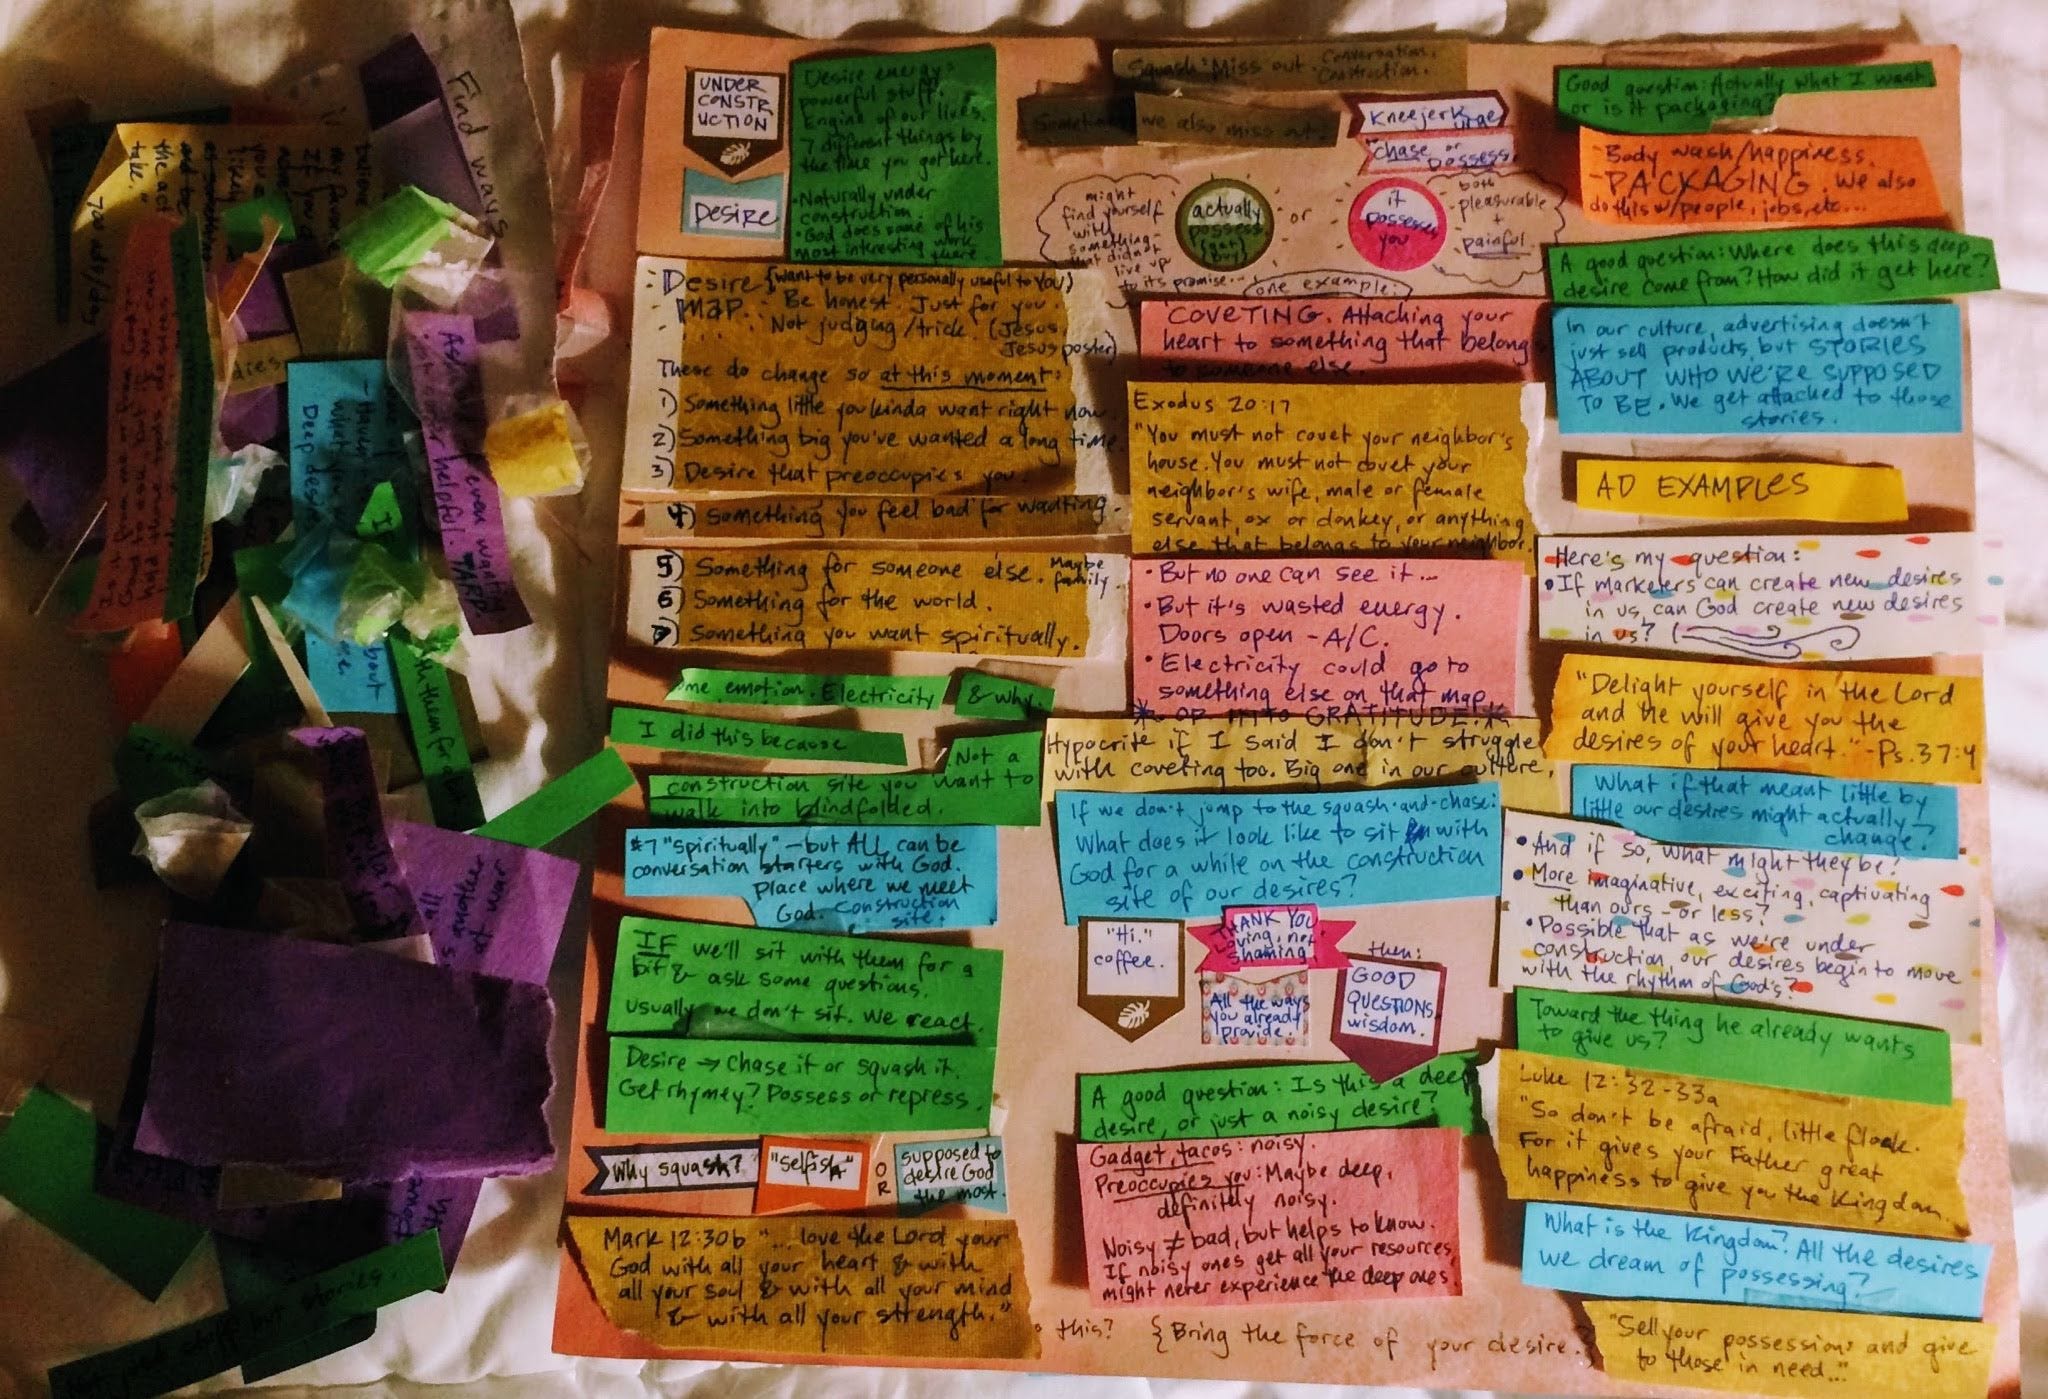 Find ways
700 ads/day
take."
the act
If you a
my favorite
dies.
Deep desire
about
not
or helpful. TARP
hold these
stories.
UNDER
CONSTR
UCTION
Desire
Desire energy:
powerful stuff.
Engine of our lives.
7 different things by
the time you got here.
• Naturally under
construction
• God does some of his
most interesting work
there
Desire {want to be very personally useful to you}
MAP. Be honest. Just for you.
Not judging/trick. (Jesus,
Jesus poster)
These do change so at this moment:
1) Something little you kinda want right now.
2) Something big you've wanted a long time.
3) Desire that preoccupies you.
4) Something you feel bad for wanting.
5) Something for someone else. Maybe family.
6) Something for the world.
7) Something you want spiritually.
me emotion. Electricity & why.
I did this because
Not a
construction site you want to
walk into blindfolded.
#7 "Spiritually" - but ALL can be
conversation starters with God.
Place where we meet
God. Construction
site.
IF we'll sit with them for a
bit & ask some questions.
usually we don't sit. We react.
Desire → Chase it or squash it.
Get rhymey? Possess or repress.
Why squash? "Selfish" OR supposed to
desire God
the most.
Mark 12:30b "... love the Lord your
God with all your heart & with
all your soul & with all your mind
& with all your strength."
Squash: Miss out. Conversation.
Construction.
we also miss out.
Kneejerk urge
chase or
possess.
might
find yourself
with
something
that didn't
live up
to its promise...
actually
possess
(get)
(buy)
or
it
possesses
you
both
pleasurable
+
painful.
one example:
COVETING. Attaching your
heart to something that belongs
to someone else.
Exodus 20:17
"You must not covet your neighbor's
house. You must not covet your
neighbor's wife, male or female
servant, ox or donkey, or anything
else that belongs to your neighbor.
• But no one can see it...
• But it's wasted energy.
Doors open - A/C.
• Electricity could go to
something else on that map.
* OR INTO GRATITUDE. *
Hypocrite if I said I don't struggle
with coveting too. Big one in our culture.
If we don't jump to the squash-and-chase:
What does it look like to sit with
God for a while on the construction
site of our desires?
"Hi."
coffee.
THANK YOU
Loving, not
shaming.
All the ways
you already
provide.
then:
GOOD
QUESTIONS
wisdom.
A good question: Is this a deep
desire, or just a noisy desire?
Gadget, tacos: noisy.
Preoccupies you: Maybe deep,
definitely noisy.
Noisy ≠ bad, but helps to know.
If noisy ones get all your resources,
might never experience the deep ones.
this? {Bring the force of your desire.}
Good question: Actually what I want,
or is it packaging?
- Body wash/happiness.
- PACKAGING. We also
do this w/people, jobs, etc...
A good question: Where does this deep
desire come from? How did it get here?
In our culture, advertising doesn't
just sell products but STORIES
ABOUT WHO WE'RE SUPPOSED
TO BE. We get attached to those
stories.
AD EXAMPLES
Here's my question:
• If marketers can create new desires
in us, can God create new desires
in us?
"Delight yourself in the Lord
and he will give you the
desires of your heart." - Ps. 37:4
What if that meant little by
little our desires might actually
change?
• And if so, what might they be?
• More imaginative, exciting, captivating
than ours - or less?
• Possible that as we're under
construction, our desires begin to move
with the rhythm of God's?
Toward the thing he already wants
to give us?
Luke 12:32-33a
"So don't be afraid, little flock.
For it gives your Father great
happiness to give you the Kingdom.
What is the Kingdom? All the desires
we dream of possessing?
"Sell your possessions and give
to those in need..."